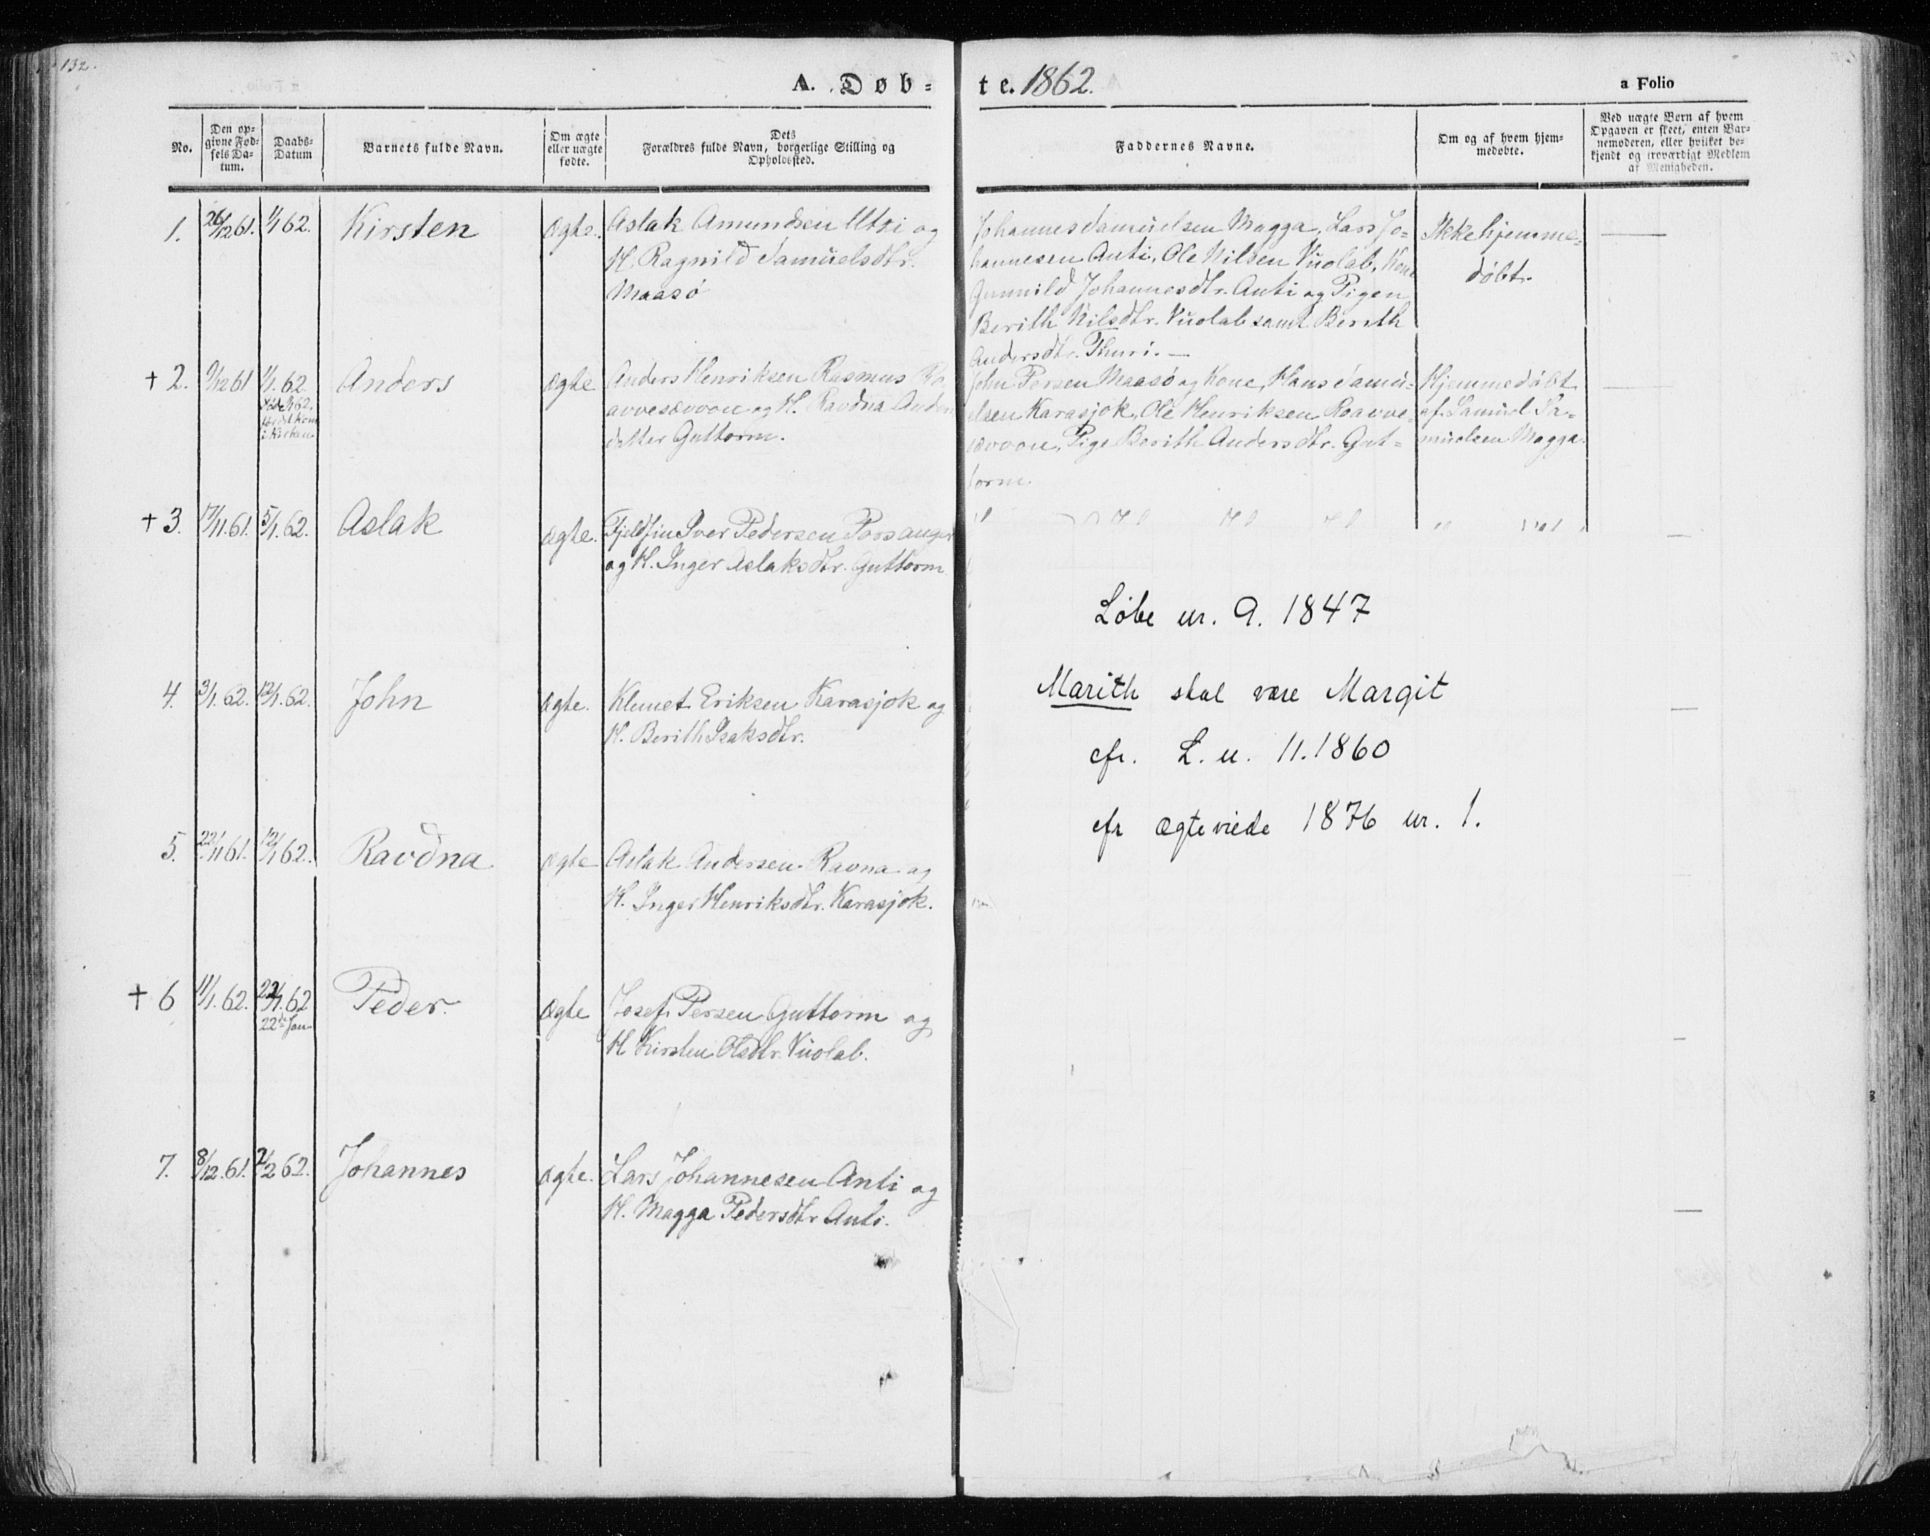 132.
A. Døb-
te. 1862.
a Folio
No.
Den op-
givne Fød-
sels Da-
tum.
Daabs-
Datum
Barnets fulde Navn.
Om ægte
eller uægte
fødte.
Dets
Forældres fulde Navn, borgerlige Stilling og
Opholdssted.
Faddernes Navne.
Om og af hvem hjem-
medøbte.
Ved uægte Børn af hvem
Opgaven er skeet, enten Bar-
nemoderen, eller hvilket be-
kjendt og troværdigt Medlem
af Menigheden.
1. 26/12 61. 1/1 62. Kirsten ægte. Aslak Amundsen Utsi og
H. Ragnild Samuelsdtr.
Maasø
Johannes Samuelsen Magga, Lars Jo-
hannesen Anti, Ole Nilsen Vuolab, Kone
Gunnild Johannesdtr. Anti og Pigen
Berith Nilsdtr. Vuolab samt Berith
Andersdtr. Thuri. —
Ikke hjemme-
døbt.
+ 2. 9/12 61 1/1. 62. Anders ægte Anders Henriksen Rasmus Ro-
avvesævvon og H. Ravdna Anders
datter Guttorm.
John Persen Maasø og Kone, Hans Samu-
elsen Karasjok, Ole Henriksen Roavve-
sævvon, Pige Berith Andersdtr. Gut-
torm.
Hjemmedøbt
af Samuel Sa-
muelsen Magga.
+ 3. 17/11. 61. 5/1. 62. Aslak ægte. Fjeldfin Iver Pedersen Porsanger
og H. Inger Aslaksdtr. Guttorm
4. 3/1. 62. 12/1. 62. John ægte. Klemet Eriksen Karasjok og
H. Berith Isaksdtr.
5. 22/11 61. 12/1 62. Ravdna ægte Aslak Andersen Ravna og
H. Inger Henriksdtr. Karasjok.
+ 6 11/1. 62. 22/1. 62 Peder. ægte Josef Persen Guttorm og
22de Jan
H Kirsten Olsdtr. Vuolab.
7. 8/12. 61. 2/2 62. Johannes ægte. Lars Johannesen Anti og
H. Magga Pedersdtr Anti.
Løbe nr. 9. 1847
Marith skal være Margit
cfr. L. n. 11. 1860
cfr ægteviede 1876 nr. 1.